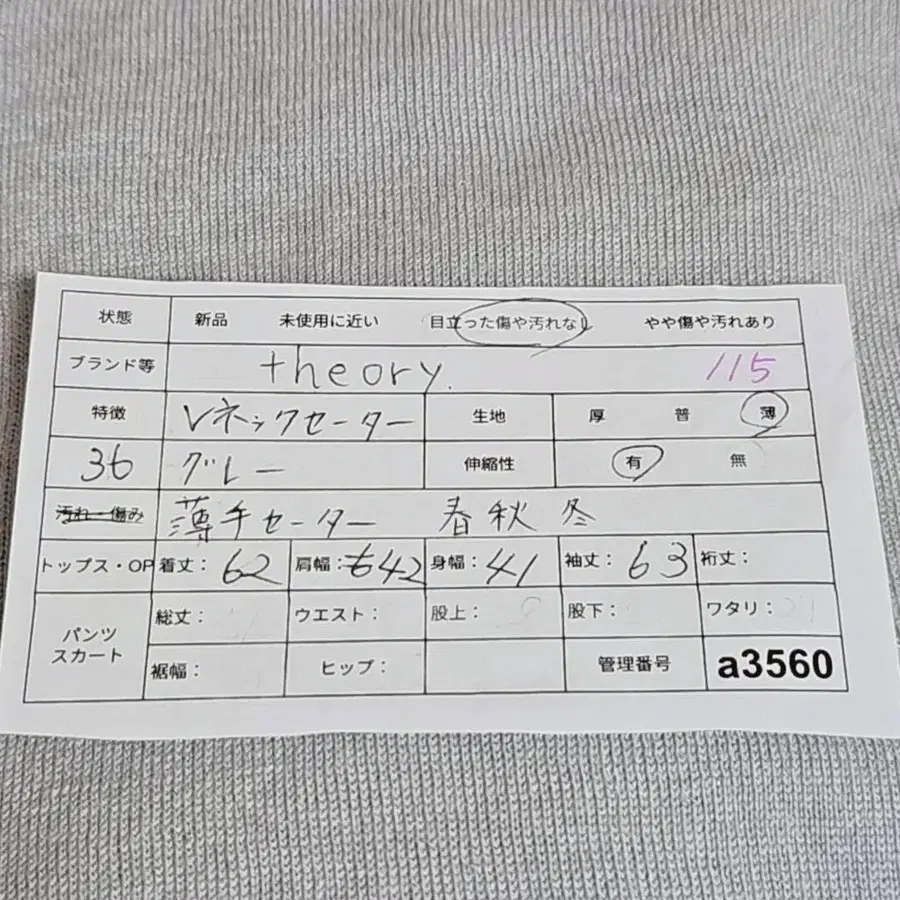 状態 新品 未使用に近い 目立った傷や汚れなし やや傷や汚れあり
ブランド等 theory. 115
特徴 Vネックセーター 生地 厚 普 薄
36 グレー 伸縮性 有 無
汚れ・傷み 薄手セーター 春秋冬
トップス・OP 着丈: 62 肩幅: 42 身幅: 41 袖丈: 63 裄丈:
パンツ スカート 総丈: ウエスト: 股上: 股下: ワタリ:
裾幅: ヒップ: 管理番号 a3560